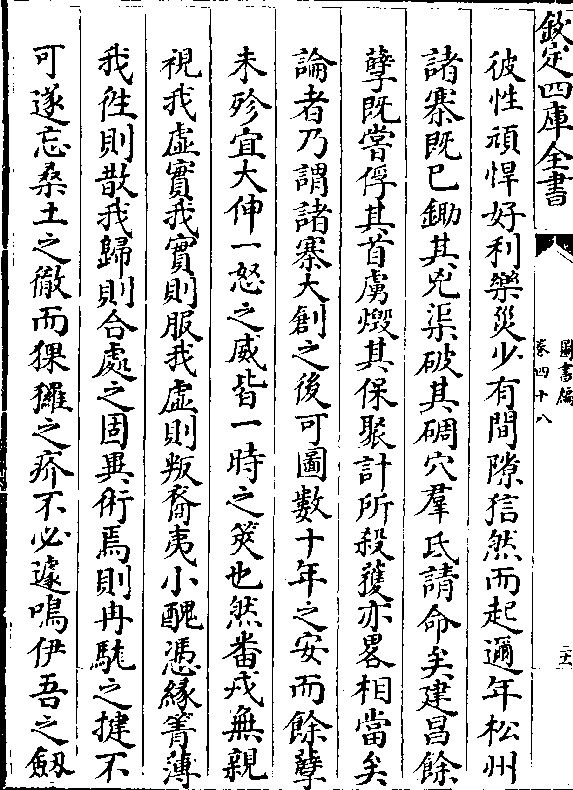 欽定四庫全書
圖書編
卷四十八
彼性頑悍好利樂災少有間隙狺然而起邇年松州
諸寨既已鋤其兇渠破其碉穴羣氐請命矣建昌餘
孽既嘗俘其首虜燬其保聚計所殺獲亦畧相當矣
論者乃謂諸寨大創之後可圖數十年之安而餘孽
未殄宜大伸一怒之威皆一時之筴也然番戎無親
視我虛實我實則服我虛則叛裔夷小醜憑緣箐薄
我徃則散我歸則合處之固異術焉則冉駹之揵不
可遂忘桑土之徹而猓玀之疥不必遽鳴伊吾之劔